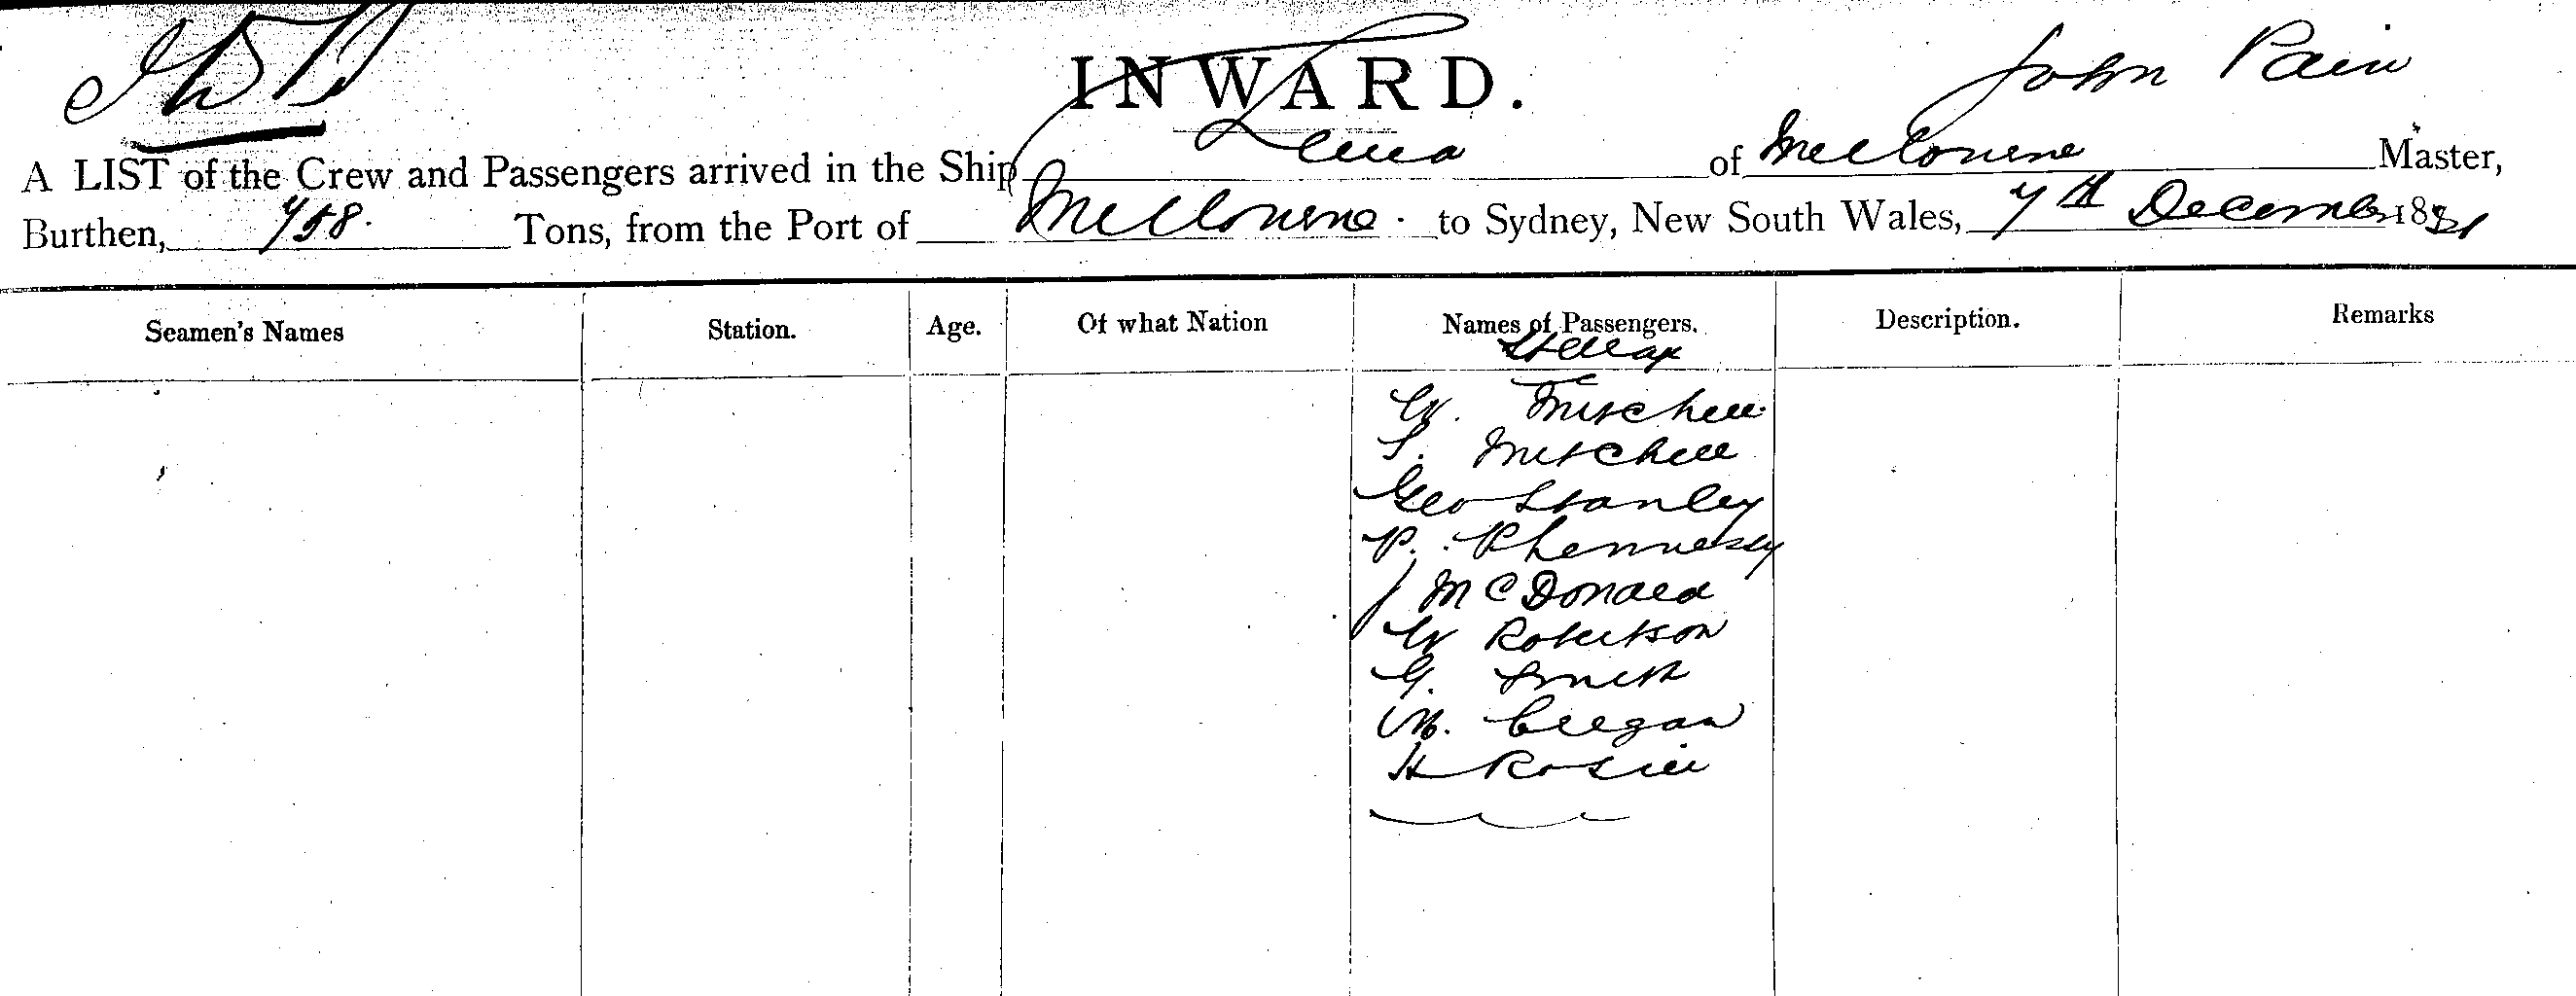 INWARD.
John Pain
A LIST of the Crew and Passengers arrived in the Ship of Melbourne Master,
Burthen, 758. Tons, from the Port of Melbourne. to Sydney, New South Wales, 7th December 1881
Seamen's Names Station. Age. Of what Nation Names of Passengers. Description. Remarks
W. Mitchell
S. Mitchell
Geo Stanley
P. Phennessy
J McDonald
W Robertson
G. Smith
M. Creegan
H Rosier